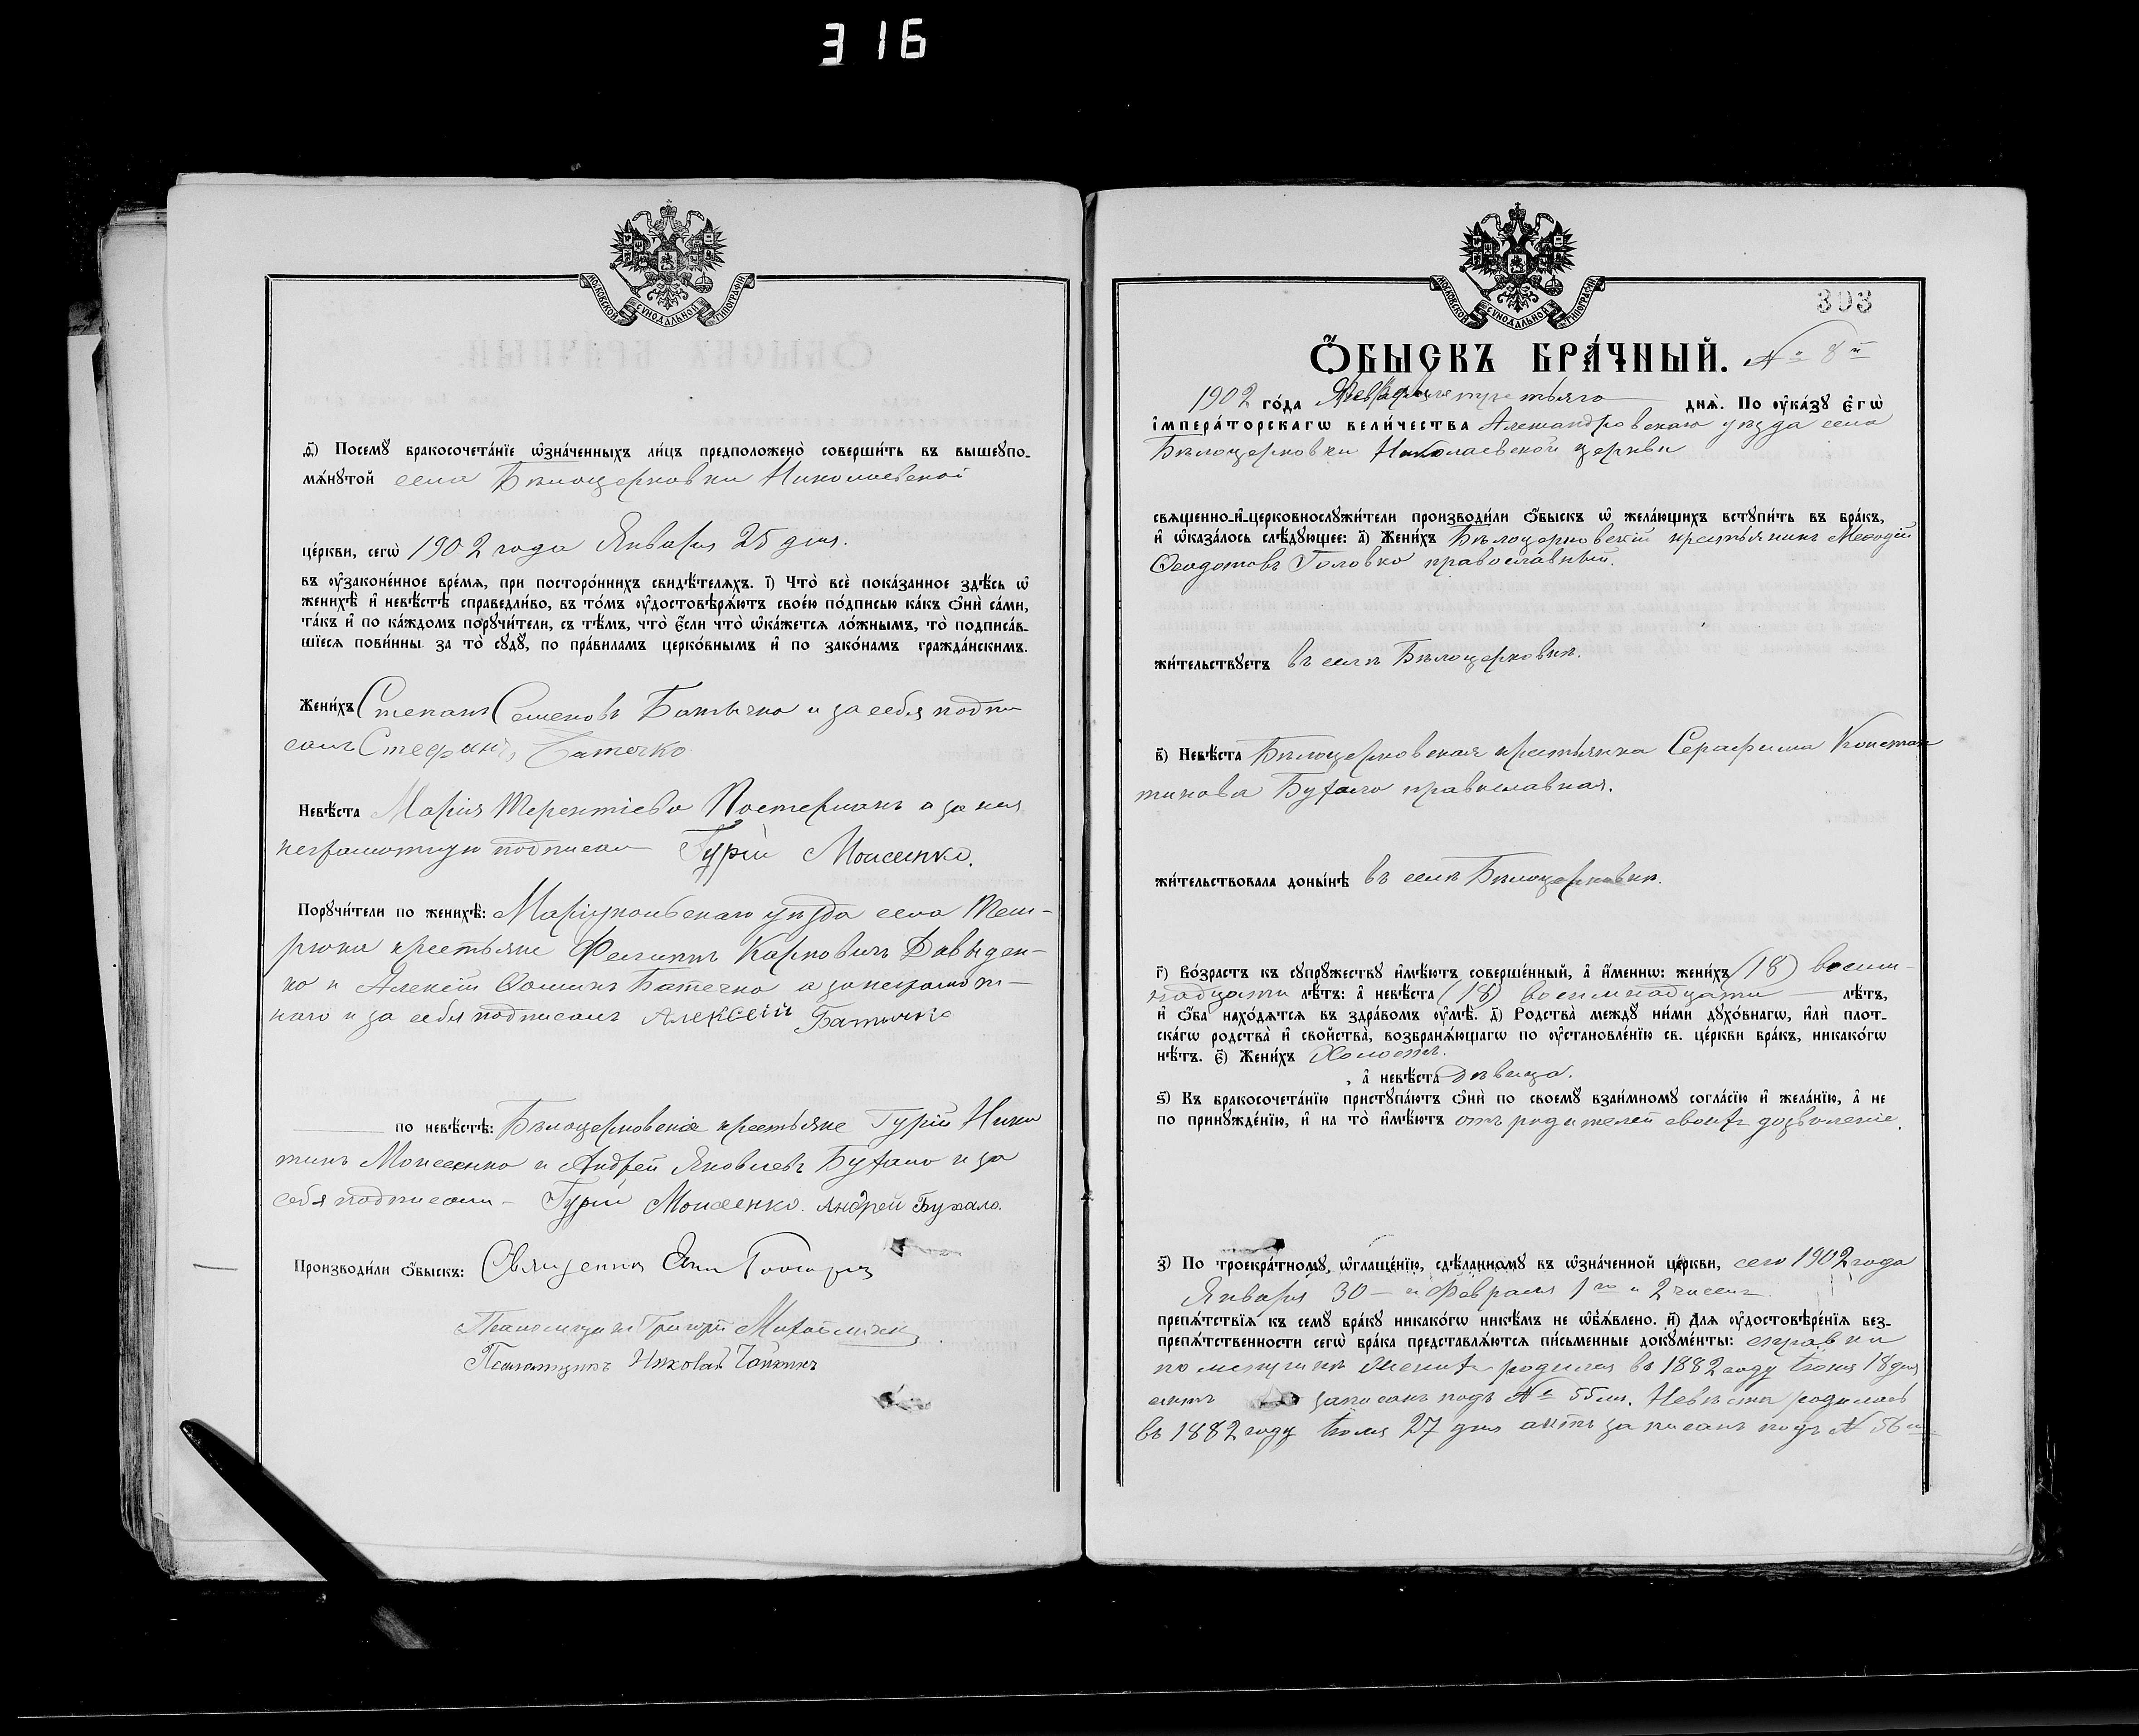 316
МОСКОВСКОЙ СѴНОДАЛЬНОЙ ТИПОГРАФІИ
ѳ҃) Посемꙋ̀ бракосочета́нїе ѡ҆зна́ченныхъ ли́цъ предположено̀ соверши́ть въ вышеупо-
мѧ́нꙋтой села Бѣлоцерковки Николаевской
це́ркви, сегѡ̀ 1902 года Января 25 дня.
въ ᲂу҆зако́ненное вре́мѧ, при посторо́ннихъ свидѣ́телѧхъ. і҃) Что̀ всѐ пока́занное здѣ́сь ѡ҆
женихѣ̀ и҆ невѣ́стѣ справедли́во, въ то́мъ ᲂу҆достовѣрѧ́ютъ свое́ю по́дписью ка́къ ѻ҆нѝ са́ми,
та́къ и҆ по ка́ждомъ порꙋчи́тели, съ тѣ́мъ, что̀ є҆́сли что̀ ѡ҆ка́жетсѧ ло́жнымъ, то̀ подписа́в-
шїесѧ пови́нны за то̀ сꙋдꙋ̀, по пра́виламъ церко́внымъ и҆ по зако́намъ гражда́нскимъ.
Жени́хъ Степанъ Семеновъ Батычко и за себя подпи
салъ Стефанъ Батечко
Невѣ́ста Марія Терентіева Костерманъ а за нея
неграмотную подписал Гурій Моисенко.
Порꙋчи́тели по женихѣ̀: Маріупольскаго уѣзда села Тем-
рюка крестьяне Филиппъ Карповичъ Давыден-
ко и Алексій Ѳоминъ Батечко а за неграмот-
наго и за себя подписалъ Алексѣй Батычко
по невѣ́стѣ: Бѣлоцерковскіе крестьяне Гурій Ники
тинъ Моисеенко и Андрей Яковлевъ Бухало и за
себя подписали – Гурій Моисеенко. Андрей Бухало.
Производи́ли ѻ҆́быскъ: Священник
Псаломщикъ Григорій
Псаломщикъ Николай Чайкинъ
МОСКОВСКОЙ СѴНОДАЛЬНОЙ ТИПОГРАФІИ
303
Ѻ҆́БЫСКЪ БРА́ЧНЫЙ. № 8й
1902 го́да Февраля третьяго днѧ̀. По ᲂу҆ка́зꙋ є҆гѡ̀
і҆мпера́торскагѡ вели́чества Александровскаго уѣзда села
Бѣлоцерковки Николаевской церкви
свѧщенно-и҆-церковнослꙋжи́тели производи́ли ѻ҆́быскъ ѡ҆ жела́ющихъ встꙋпи́ть въ бра́къ,
и҆ ѡ҆каза́лось слѣ́дꙋющее: а҃) Жени́хъ Бѣлоцерковскій крестьянинъ Меѳодій
Ѳеодотовъ Головко православный.
жи́тельствꙋетъ въ селѣ Бѣлоцерковкѣ.
в҃) Невѣ́ста Бѣлоцерковская крестьянка Серафима Констан
тинова Бухало православная.
жи́тельствовала доны́нѣ въ селѣ Бѣлоцерковкѣ.
г҃) Во́зрастъ къ сꙋпрꙋ́жествꙋ и҆мѣ́ютъ соверше́нный, а҆ и҆́меннѡ: жени́хъ (18) восем-
надцати лѣ́тъ: а҆ невѣ́ста (18) восемнадцати – лѣ́тъ,
и҆ ѻ҆́ба нахо́дѧтсѧ въ здра́вомъ ᲂу҆мѣ̀. д҃) Родства̀ междꙋ̀ ни́ми дꙋхо́внагѡ, и҆лѝ плот-
ска́гѡ родства̀ и҆ свойства̀, возбранѧ́ющагѡ по ᲂу҆становле́нїю св. це́ркви бра́къ, никако́гѡ
нѣ́тъ. є҃) Жени́хъ Холостъ.
, а҆ невѣ́ста Дѣвица.
ѕ҃) Къ бракосочета́нїю пристꙋпа́ютъ ѻ҆нѝ по своемꙋ̀ взаи́мномꙋ согла́сїю и҆ жела́нїю, а҆ не
по принꙋжде́нїю, и҆ на то̀ и҆мѣ́ютъ отъ родителей своихъ дозволеніе.
з҃) По троекра́тномꙋ, ѡ҆глаше́нїю, сдѣ́ланномꙋ въ ѡ҆зна́ченной це́ркви, сего 1902 года
Января 30 – и Февраля 1го и 2 чиселъ.
препѧ́тствїѧ къ семꙋ̀ бра́кꙋ никако́гѡ никѣ́мъ не ѡ҆б̾ѧ́влено. и҃) Длѧ̀ ᲂу҆достовѣре́нїѧ без-
препѧ́тственности сегѡ̀ бра́ка представлѧ́ютсѧ пи́сьменные докꙋме́нты: справки
по метрикѣ Женихъ родился въ 1882 году Іюня 18 дня
актъ записанъ подъ № 55мъ. Невѣста родилась
въ 1882 году Іюля 27 дня актъ записанъ подъ № 56мъ.